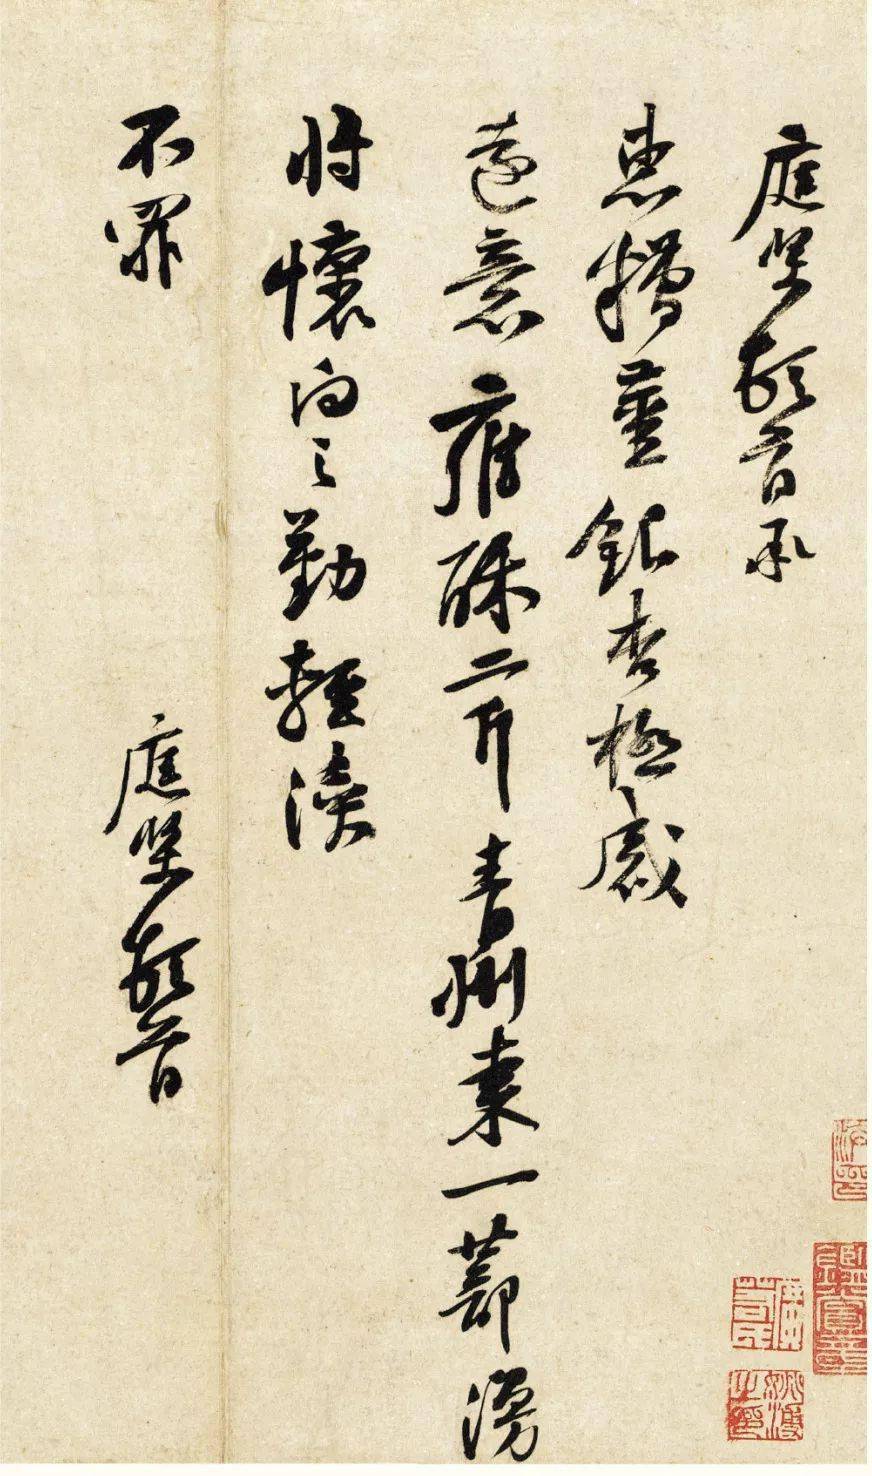 庭堅頓首承
惠糟薑銀杏極感
遠意雍酥二斤青州棗一蔀漫
將懷向之勤輕瀆
不罪 庭堅頓首